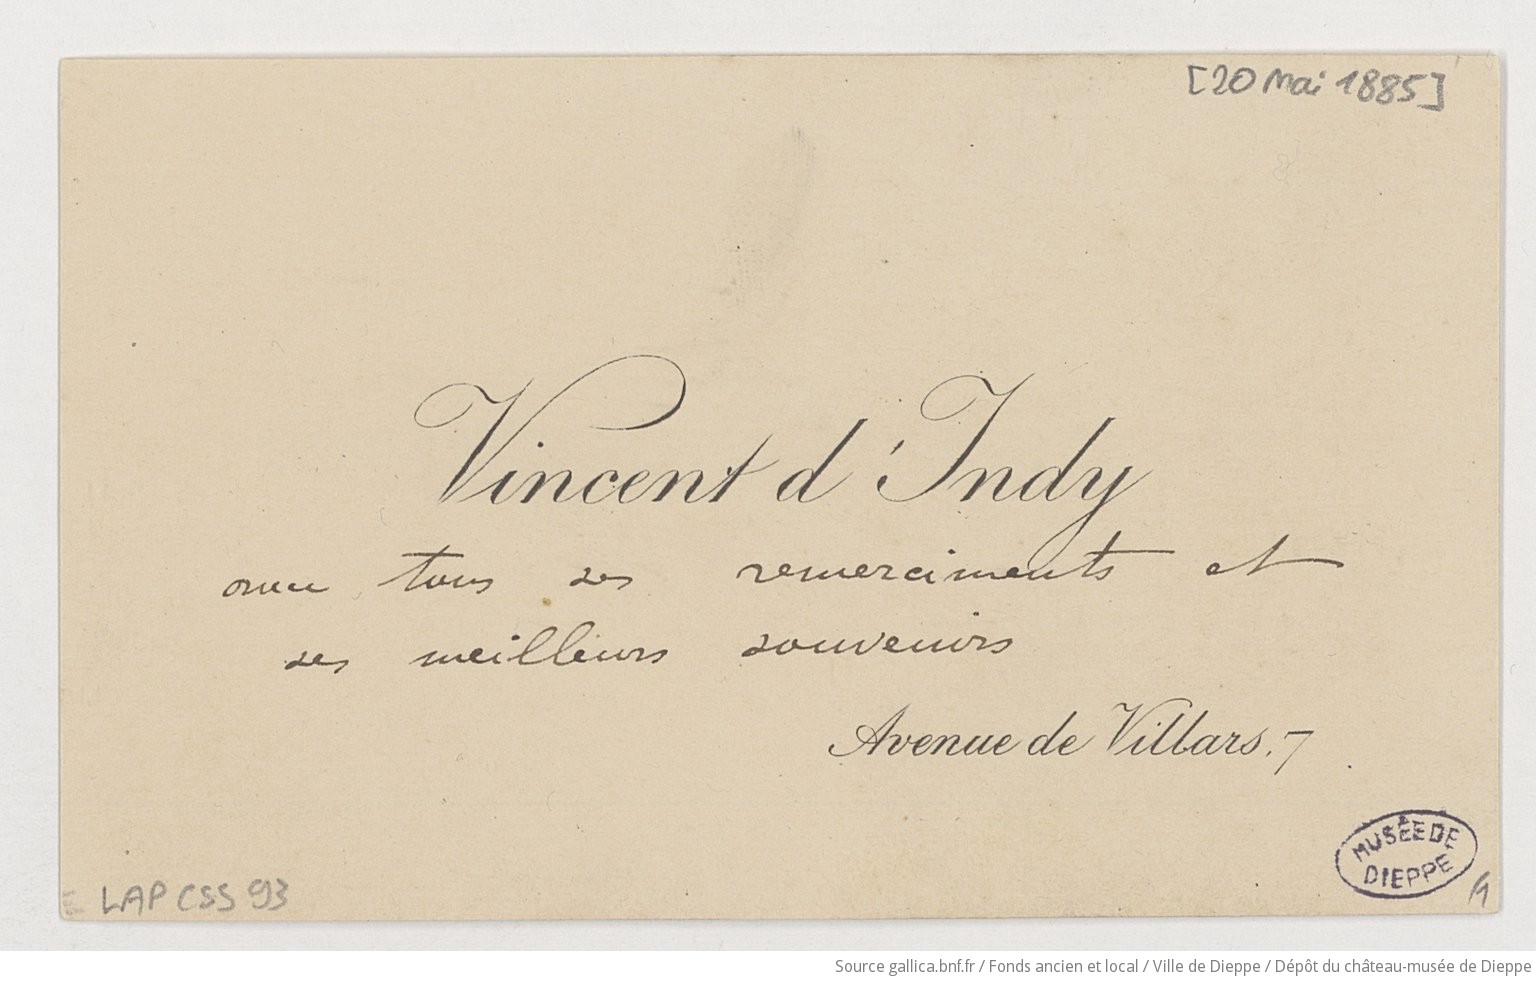 [20 Mai 1885]
Vincent d'Indy
avec tous ses remerciments et
ses meilleurs souvenirs
Avenue de Villars, 7
MUSÉE DE
DIEPPE
LAP CSS 93
Source gallica.bnf.fr / Fonds ancien et local / Ville de Dieppe / Dépôt du château-musée de Dieppe